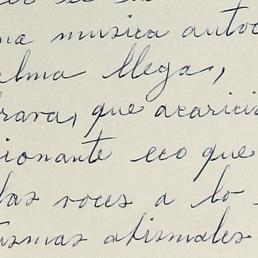 na musica autoc
alma llega,
brava, que acarici
ionante eco que
las voces a lo
ismas abismales